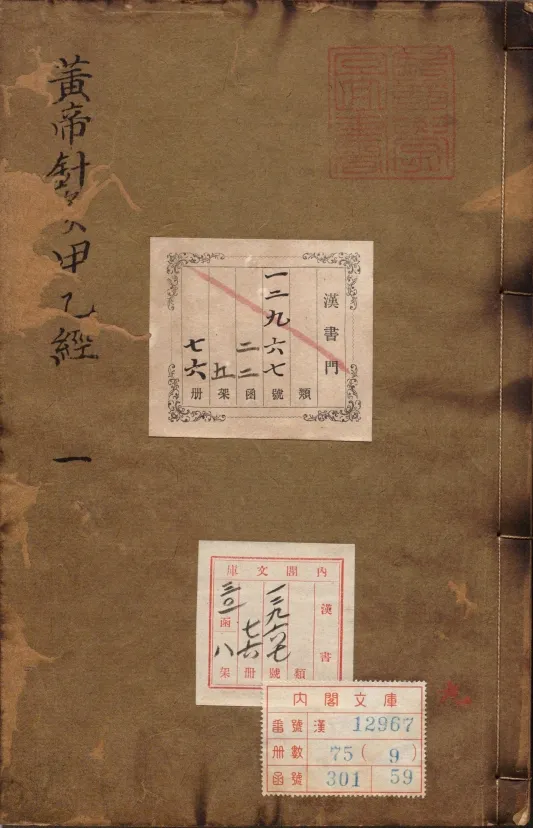 黃帝針灸甲乙經 一
漢書門
類
一二九六七號
二二函
五架
七六册
內閣文庫
漢書
類
一二九六七號
七六册
三〇一函
八架
内閣文庫
番號 漢 12967
册數 75 ( 9 )
函號 301 59